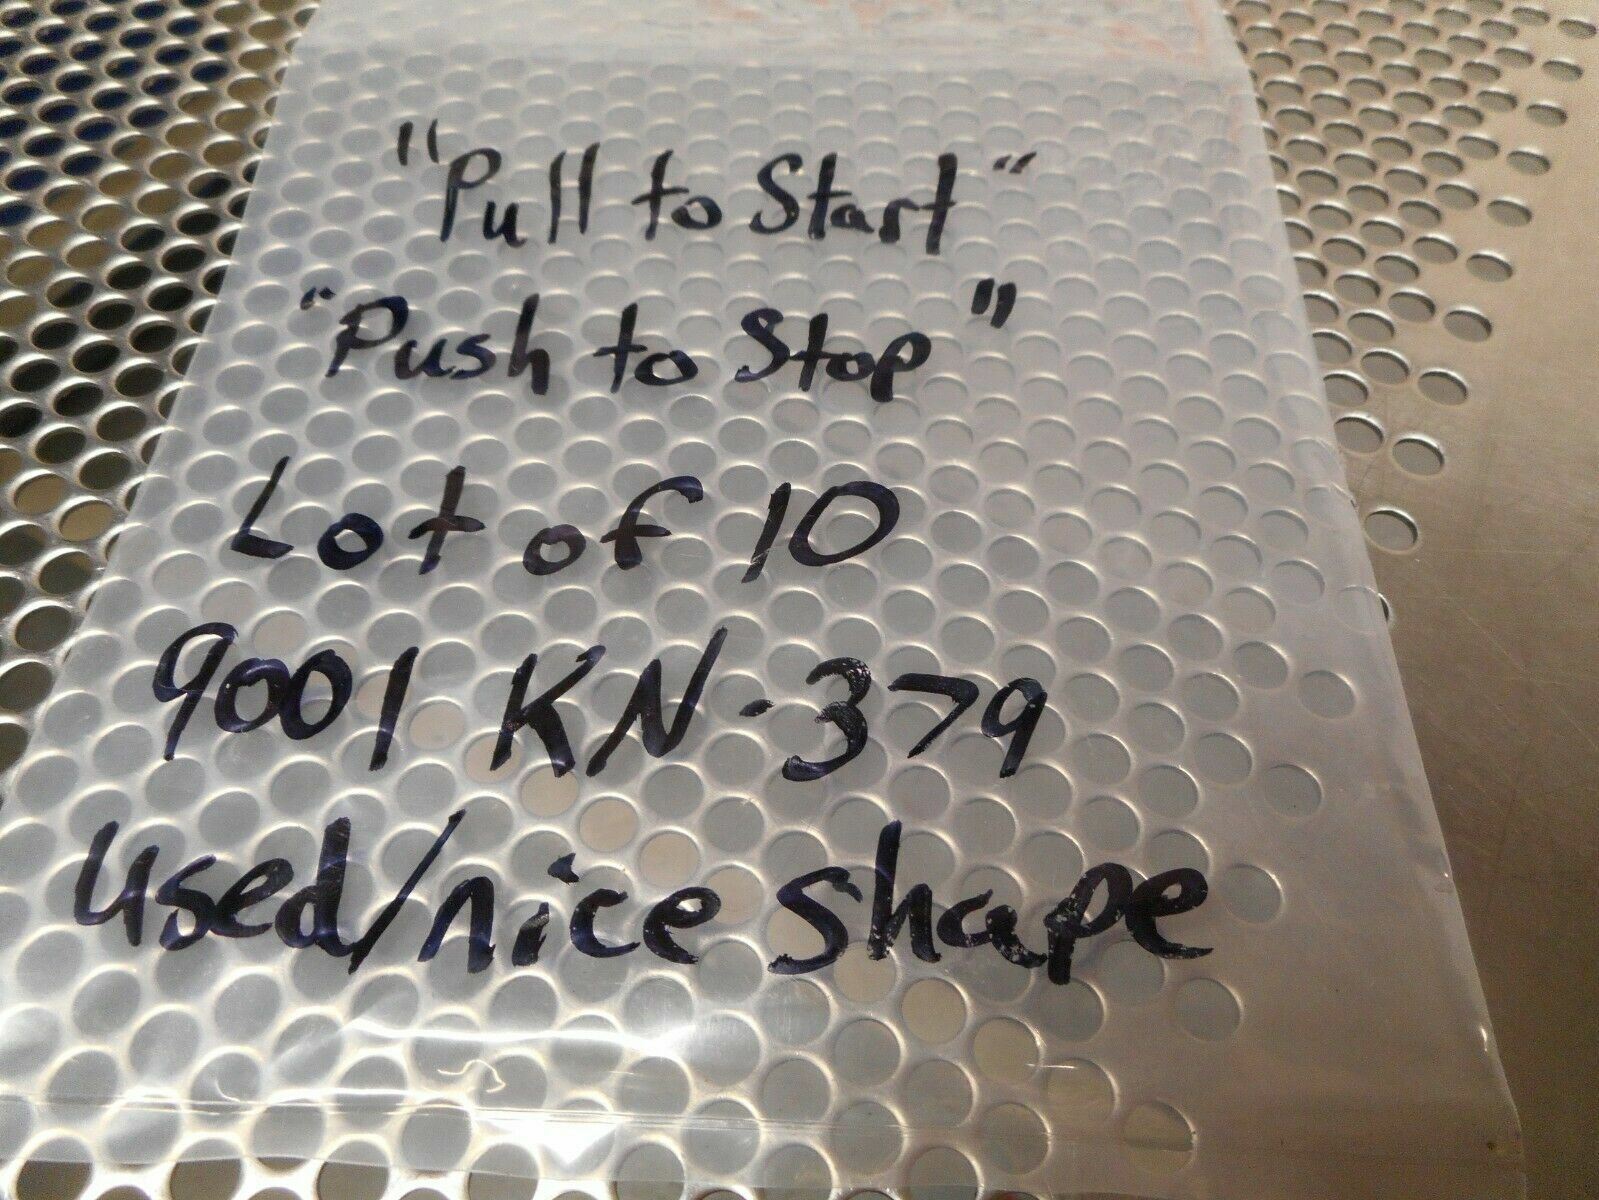 "Pull to Start"
"Push to Stop"
Lot of 10
9001 KN-379
used/nice shape